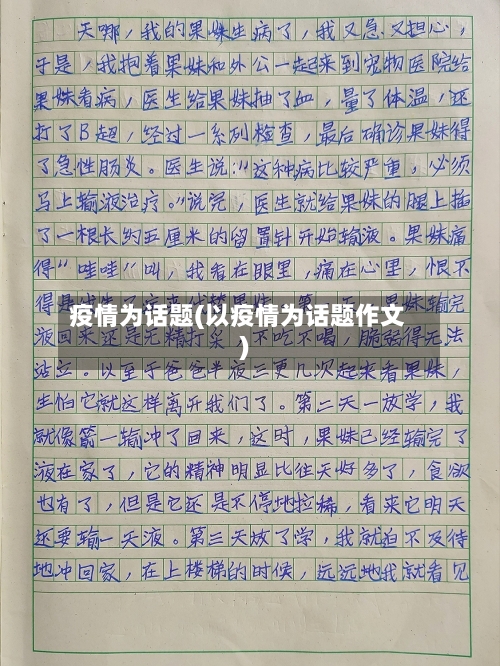 天哪，我的果妹生病了，我又急又担心，
于是，我抱着果妹和外公一起来到宠物医院给
果妹看病，医生给果妹抽了血，量了体温，还
打了B超，经过一系列检查，最后确诊果妹得
了急性肠炎。医生说："这种病比较严重，必须
马上输液治疗。"说完，医生就给果妹的腿上插
了一根长约五厘米的留置针开始输液。果妹痛
得"哇哇"叫，我看在眼里，痛在心里，恨不
得是 果妹输完
疫情为话题(以疫情为话题作文
)
液回来还是无精打采 不吃不喝，脆弱得无法
站立。以至于爸爸半夜三更几次起来看果妹，
生怕它就这样离开我们了。第二天一放学，我
就像箭一输冲了回来，这时，果妹已经输完了
液在家了，它的精神明显比往天好多了，食欲
也有了，但是它还是不停地拉稀，看来它明天
还要输一天液。第三天放了学，我就迫不及待
地冲回家，在上楼梯的时候，远远地我就看见